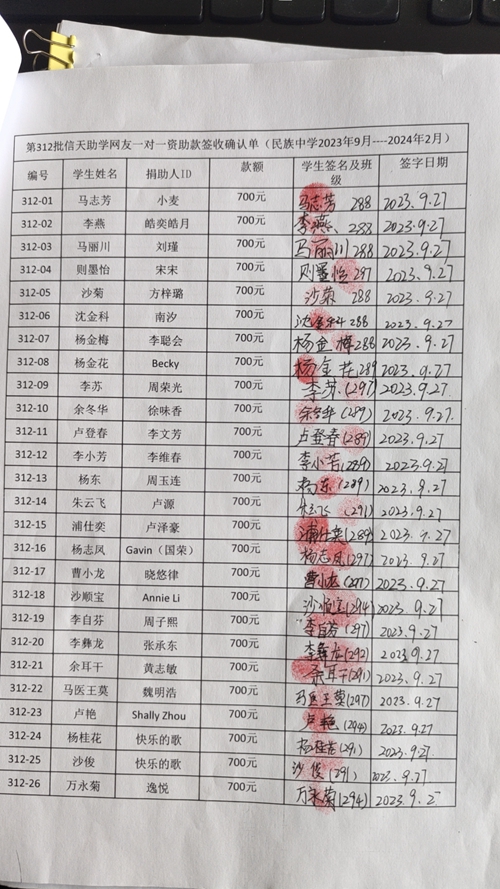 第312批信天助学网友一对一资助款签收确认单（民族中学2023年9月----2024年2月）
编号 学生姓名 捐助人ID 款额 学生签名及班级 签字日期
312-01 马志芳 小麦 700元 马志芳 288 2023.9.27
312-02 李燕 皓奕皓月 700元 李燕、288 2023.9.27
312-03 马丽川 刘瑾 700元 马丽川 288 2023.9.27
312-04 则墨怡 宋宋 700元 则墨怡 297 2023.9.27
312-05 沙菊 方梓璐 700元 沙菊 288 2023.9.27
312-06 沈金科 南汐 700元 沈金科 288 2023.9.27
312-07 杨金梅 李聪会 700元 杨金梅 288 2023.9.27
312-08 杨金花 Becky 700元 杨金花 289 2023.9.27
312-09 李苏 周荣光 700元 李苏.(297) 2023.9.27
312-10 余冬华 徐味香 700元 余冬华(289) 2023.9.27
312-11 卢登春 李文芳 700元 卢登春(289) 2023.9.27
312-12 李小芳 李维春 700元 李小芳(289) 2023.9.27
312-13 杨东 周玉连 700元 杨东(289) 2023.9.27
312-14 朱云飞 卢源 700元 (291) 2023.9.27
312-15 浦仕奕 卢泽豪 700元 浦仕奕(289) 2023.9.27
312-16 杨志凤 Gavin（国荣） 700元 杨志凤(297) 2023.9.27
312-17 曹小龙 晓悠律 700元 曹小龙(297) 2023.9.27
312-18 沙顺宝 Annie Li 700元 沙顺宝(294) 2023.9.27
312-19 李自芬 周子熙 700元 李自芬(297) 2023.9.27
312-20 李彝龙 张承东 700元 李彝龙(292) 2023.9.27
312-21 余耳干 黄志敏 700元 余耳干(291) 2023.9.27
312-22 马医王莫 魏明浩 700元 马医王莫(297) 2023.9.27
312-23 卢艳 Shally Zhou 700元 卢艳(294) 2023.9.27
312-24 杨桂花 快乐的歌 700元 杨桂花(291) 2023.9.27
312-25 沙俊 快乐的歌 700元 沙俊(291) 2023.9.27
312-26 万永菊 逸悦 700元 万永菊(294) 2023.9.27